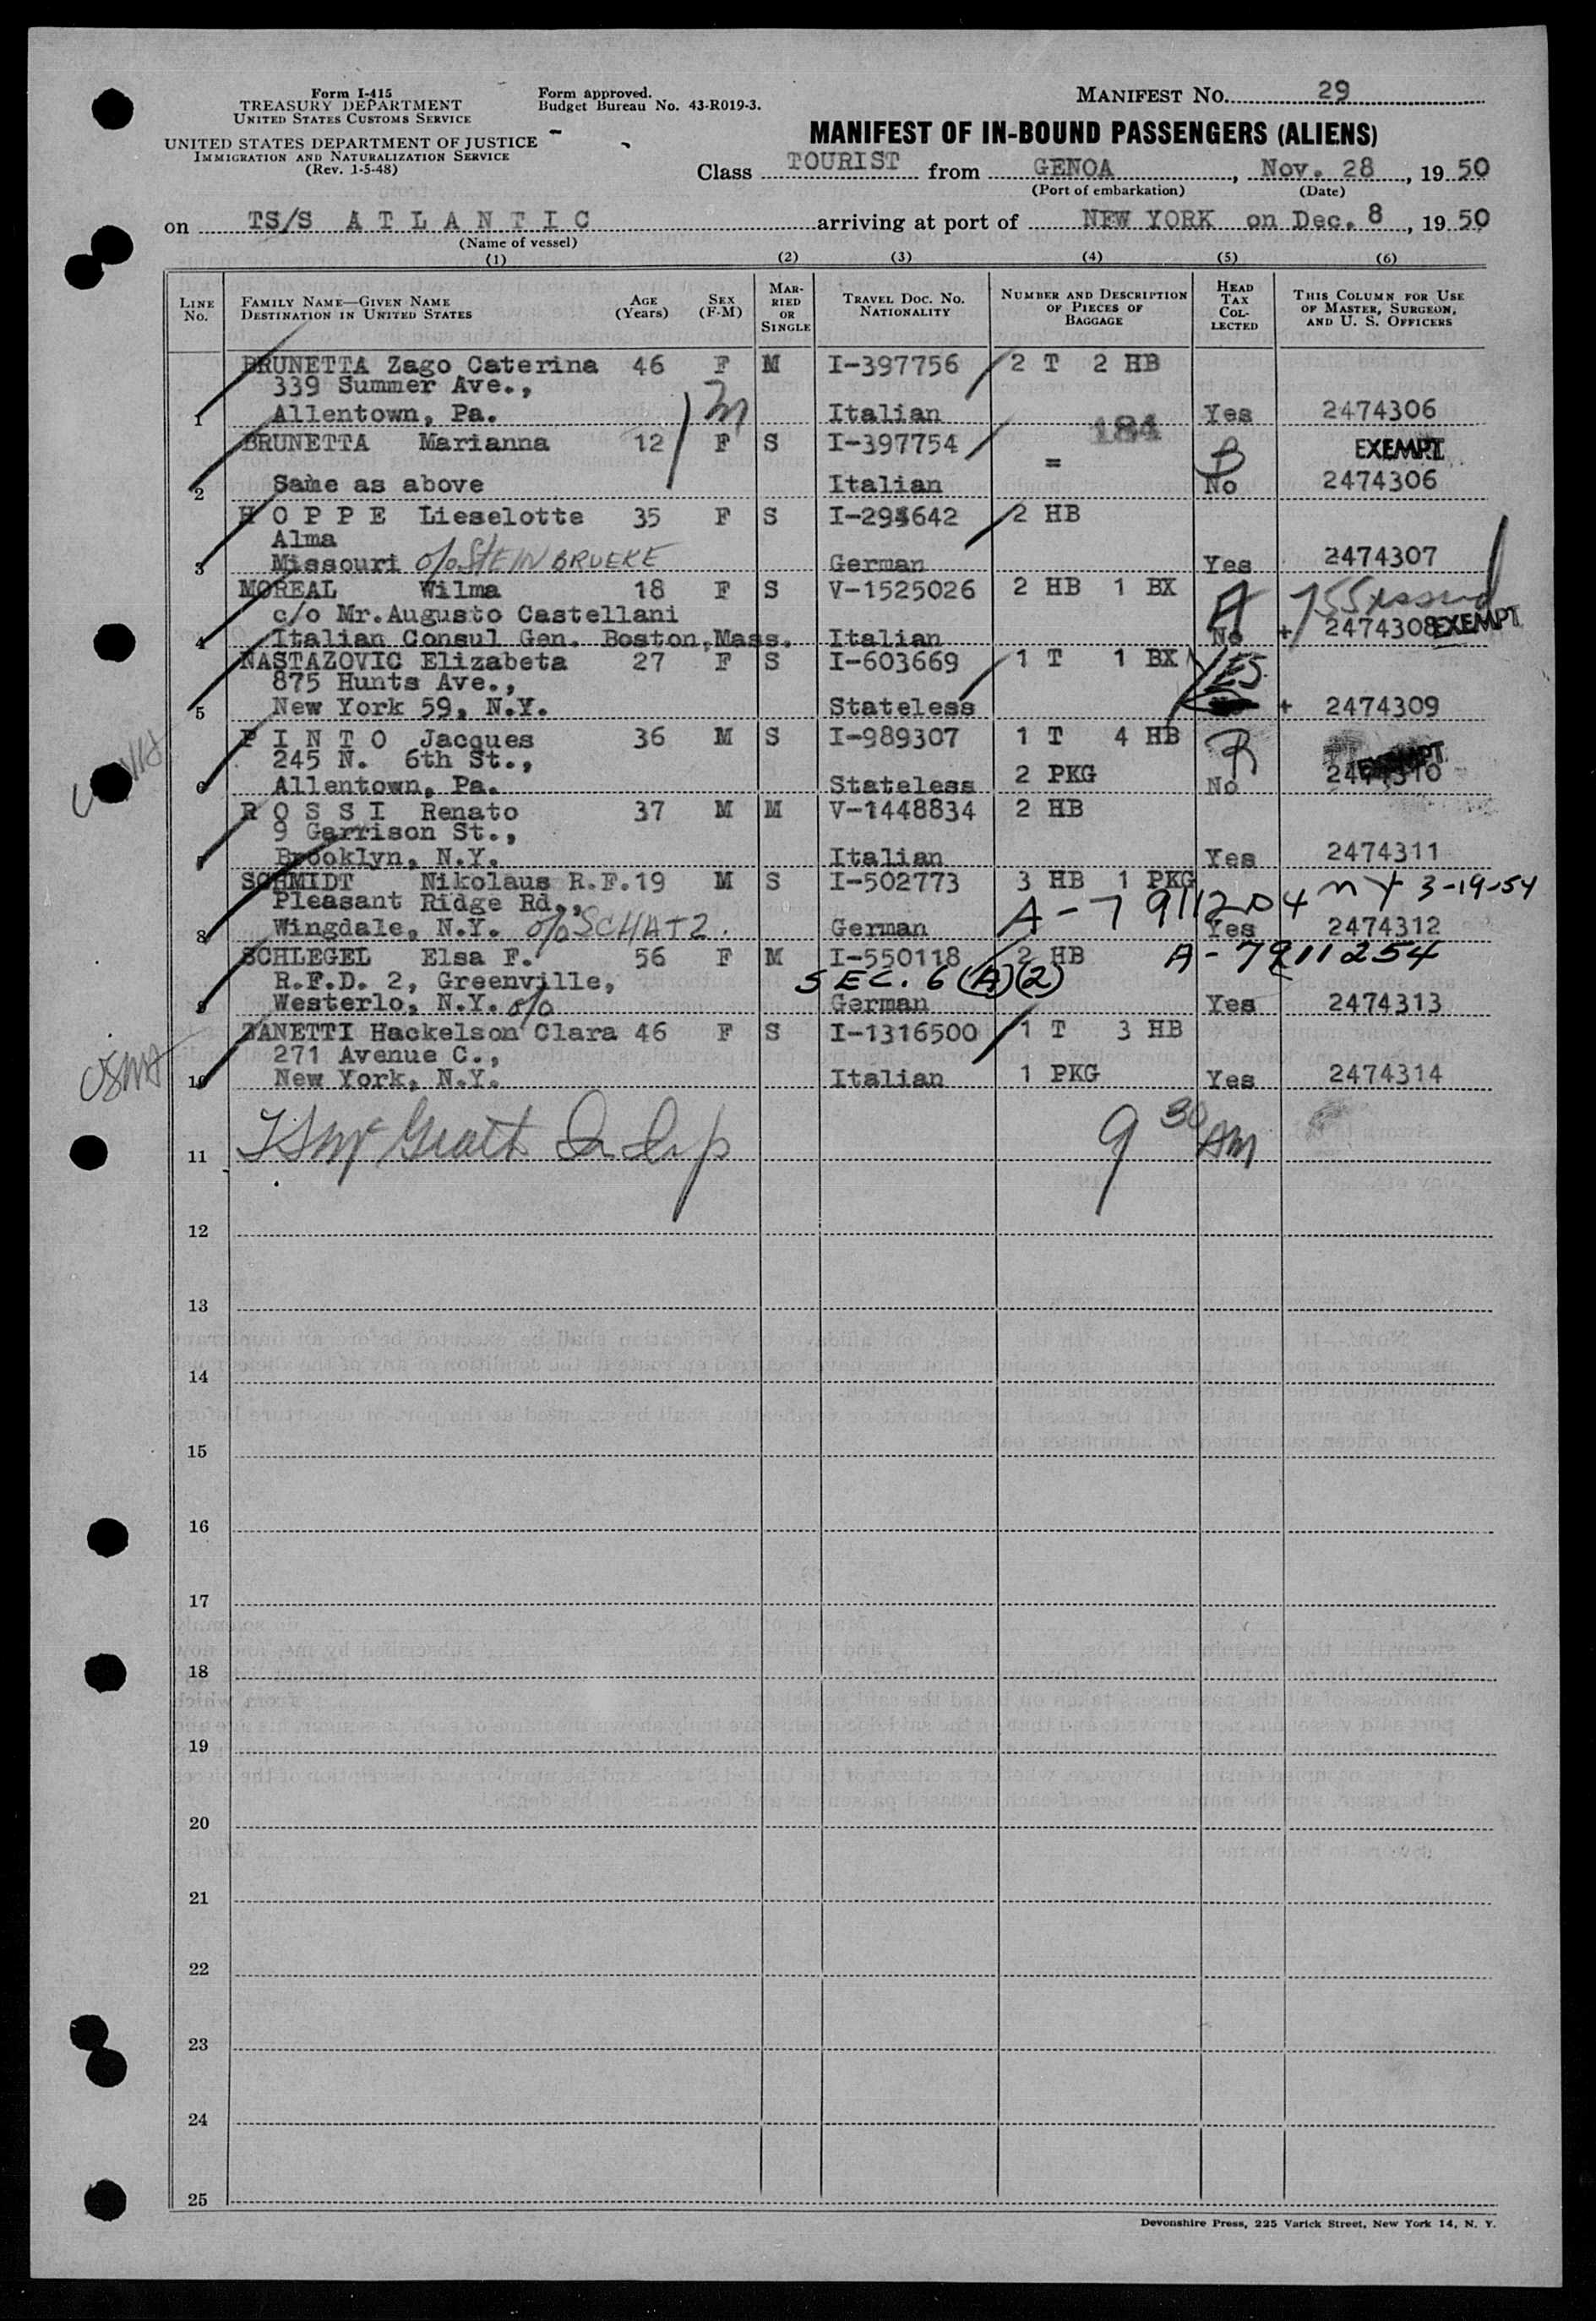 Form I-415
TREASURY DEPARTMENT
UNITED STATES CUSTOMS SERVICE
UNITED STATES DEPARTMENT OF JUSTICE
IMMIGRATION AND NATURALIZATION SERVICE
(Rev. 1-5-48)
Form approved.
Budget Bureau No. 43-R019-3.
MANIFEST NO. 29
MANIFEST OF IN-BOUND PASSENGERS (ALIENS)
Class TOURIST from GENOA, Nov. 28, 19 50
(Port of embarkation) (Date)
on TS/S A T L A N T I C arriving at port of NEW YORK on Dec. 8, 19 50
(Name of vessel)
(1) (2) (3) (4) (5) (6)
LINE No. FAMILY NAME—GIVEN NAME DESTINATION IN UNITED STATES AGE (Years) SEX (F-M) MARRIED OR SINGLE TRAVEL DOC. NO. NATIONALITY NUMBER AND DESCRIPTION OF PIECES OF BAGGAGE HEAD TAX COLLECTED THIS COLUMN FOR USE OF MASTER, SURGEON, AND U. S. OFFICERS
BRUNETTA Zago Caterina 46 F M I-397756 2 T 2 HB
339 Summer Ave.,
1 Allentown, Pa. Italian Yes 2474306
184
BRUNETTA Marianna 12 F S I-397754 = B EXEMPT
2 Same as above Italian No 2474306
H O P P E Lieselotte 35 F S I-294642 2 HB
Alma
3 Missouri c/o STEINBRUEKE German Yes 2474307
MOREAL Wilma 18 F S V-1525026 2 HB 1 BX
c/o Mr.Augusto Castellani A
4 Italian Consul Gen. Boston,Mass. Italian No + 2474308 EXEMPT
NASTAZOVIC Elizabeta 27 F S I-603669 1 T 1 BX YES
875 Hunts Ave.,
5 New York 59, N.Y. Stateless + 2474309
P I N T O Jacques 36 M S I-989307 1 T 4 HB
245 N. 6th St., EXEMPT
6 Allentown, Pa. Stateless 2 PKG No 2474310
R O S S I Renato 37 M M V-1448834 2 HB
9 Garrison St.,
7 Brooklyn, N.Y. Italian Yes 2474311
SCHMIDT Nikolaus R.F. 19 M S I-502773 3 HB 1 PKG
Pleasant Ridge Rd., A-7 911204 NY 3-19-54
8 Wingdale, N.Y. c/o SCHATZ. German Yes 2474312
SCHLEGEL Elsa F. 56 F M I-550118 2 HB A-7911254
R.F.D. 2, Greenville, SEC. 6 (A)(2)
9 Westerlo, N.Y. c/o German Yes 2474313
ZANETTI Hackelson Clara 46 F S I-1316500 1 T 3 HB
271 Avenue C.,
10 New York, N.Y. Italian 1 PKG Yes 2474314
11 9 30 AM
12
13
14
15
16
17
18
19
20
21
22
23
24
25
Devonshire Press, 225 Varick Street, New York 14, N. Y.